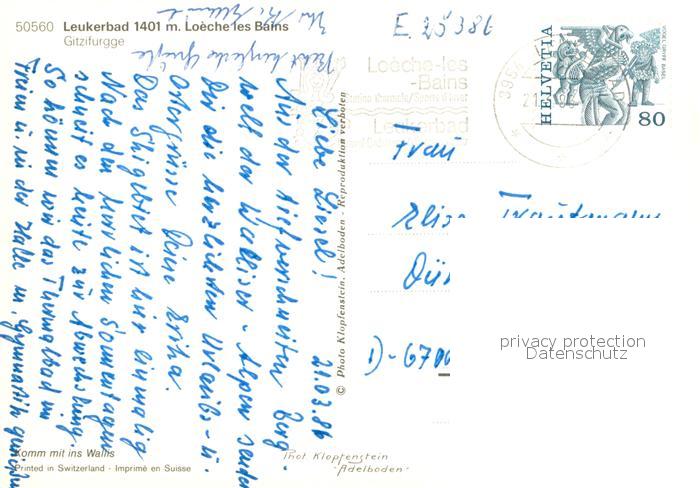 50560 Leukerbad 1401 m. Loèche les Bains
Gitzifurgge
21.03.86
Liebe Liesel!
Aus der tiefverschneiten Berg-
welt der Walliser-Alpen sende
Dir die herzlichsten Urlaubs- u.
Ostergrüsse Deine Erika.
Das Skigebiet ist hier einmalig
Nach den herrlichen Sonnentagen
schneit es heute zur Abwechslung.
So können wir das Thermalbad im
Freien u. in der Halle m. Gymnastik
Recht herzliche Grüße
E. 25386
Loèche-les
-Bains
Leukerbad
HELVETIA
VOGEL GRYFF BASEL
80
Frau
Elise Trautmann
Dür
D-6700
privacy protection
Datenschutz
© Photo Klopfenstein, Adelboden - Reproduktion verboten
Komm mit ins Wallis
Printed in Switzerland - Imprimé en Suisse
Phot Klopfenstein
Adelboden